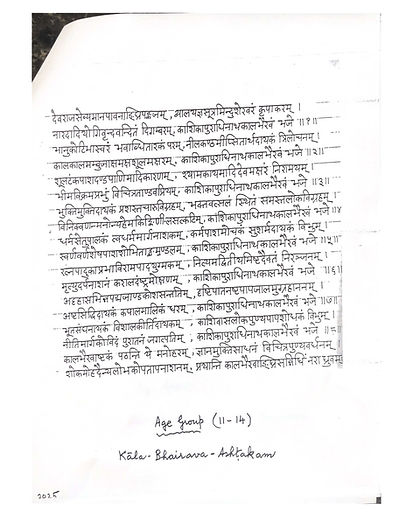 देवराजसेव्यमानपावनाङ्घ्रिपङ्कजम्, व्यालयज्ञसूत्रमिन्दुशेखरं कृपाकरम् ।
नारदादियोगिवृन्दवन्दितं दिगम्बरम्, काशिकापुराधिनाथकालभैरवं भजे ॥१॥
भानुकोटिभास्वरं भवाब्धितारकं परम्, नीलकण्ठमीप्सितार्थदायकं त्रिलोचनम् ।
कालकालमम्बुजाक्षमक्षशूलमक्षरम्, काशिकापुराधिनाथकालभैरवं भजे ॥२॥
शूलटंकपाशदण्डपाणिमादिकारणम्, श्यामकायमादिदेवमक्षरं निरामयम् ।
भीमविक्रमंप्रभुं विचित्रताण्डवप्रियम्, काशिकापुराधिनाथकालभैरवं भजे ॥३॥
भुक्तिमुक्तिदायकं प्रशस्तचारुविग्रहम्, भक्तवत्सलं स्थितं समस्तलोकविग्रहम् ।
विनिक्वणन्मनोज्ञहेमकिङ्किणीलसत्कटिम्, काशिकापुराधिनाथकालभैरवं भजे ॥४
धर्मसेतुपालकं त्वधर्ममार्गनाशकम्, कर्मपाशमोचकं सुशर्मदायकं विभुम् ।
स्वर्णवर्णशेषपाशशोभिताङ्गमण्डलम्, काशिकापुराधिनाथकालभैरवं भजे ॥५॥
रत्नपादुकाप्रभाभिरामपादयुग्मकम्, नित्यमद्वितीयमिष्टदैवतं निरञ्जनम् ।
मृत्युदर्पनाशनं करालदंष्ट्रमोक्षणम्, काशिकापुराधिनाथकालभैरवं भजे ॥६॥
अट्टहासभिन्नपद्मजाण्डकोशसन्ततिम्, दृष्टिपातनष्टपापजालमुग्रशासनम् ।
अष्टसिद्धिदायकं कपालमालिकं धरम्, काशिकापुराधिनाथकालभैरवं भजे ॥७॥
भूतसंघनायकं विशालकीर्तिदायकम्, काशिवासलोकपुण्यपापशोधकं विभुम् ।
नीतिमार्गकोविदं पुरातनं जगत्पतिम्, काशिकापुराधिनाथकालभैरवं भजे ॥८॥
कालभैरवाष्टकं पठन्ति ये मनोहरम्, ज्ञानमुक्तिसाधनं विचित्रपुण्यवर्धनम् ।
शोकमोहदैन्यलोभकोपतापनाशनम्, प्रयान्ति कालभैरवांङ्घ्रिसन्निधिं नरा ध्रुवम्
Age Group (11-14)
Kāla-Bhairava-Ashṭakam
2025